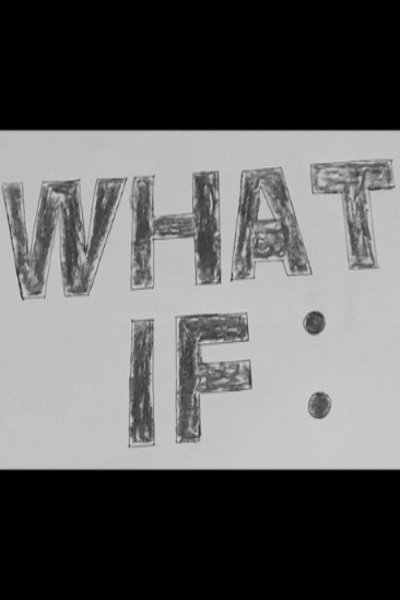 WHAT
IF: